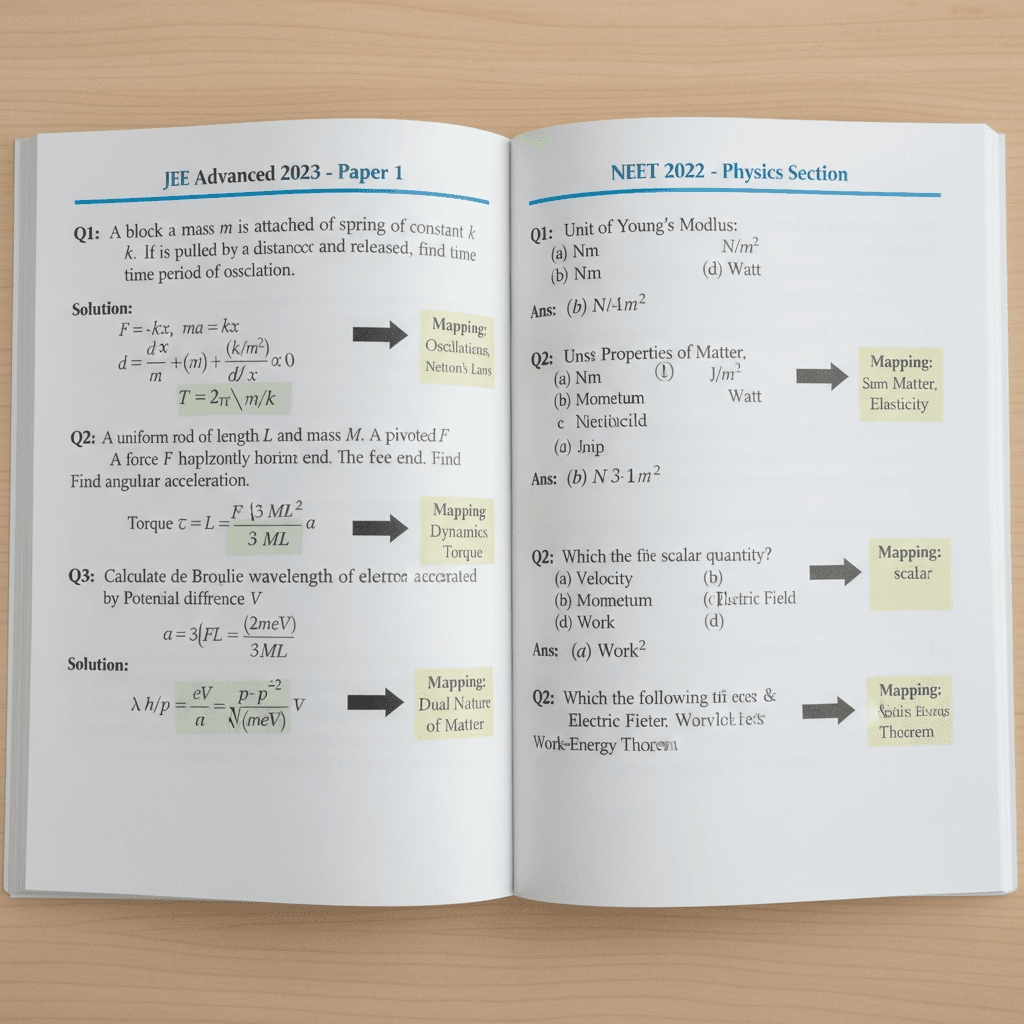 JEE Advanced 2023 - Paper 1
Q1: A block a mass m is attached of spring of constant k
k. If is pulled by a distanccr and released, find time
time period of ossclation.
Solution:
F = -kx, ma = kx
d = dx/m + (m) + (k/m²)/d/x ∝ 0
T = 2π \ m/k
Mapping:
Oscillations,
Netton's Lans
Q2: A uniform rod of length L and mass M. A pivoted F
A force F haplzontly horint end. The fee end. Find
Find angular acceleration.
Torque τ = L = F |3 ML²/3 ML a
Mapping
Dynamics
Torque
Q3: Calculate de Broulie wavelength of eletron
by Potenial diffrence V
a = 3(FL = (2meV)/3ML
Solution:
λ h/p = eV/a = p-p÷²/√(meV) V
Mapping:
Dual Nature
of Matter
NEET 2022 - Physics Section
Q1: Unit of Young's Modlus:
(a) Nm N/m²
(b) Nm (d) Watt
Ans: (b) N/-1m²
Q2: Unss Properties of Matter,
(a) Nm J/m²
(b) Mometum Watt
c
(a) Jnip
Ans: (b) N 3-1m²
Mapping:
Sum Matter,
Elasticity
Q2: Which the fie scalar quantity?
(a) Velocity (b)
(b) Mornetum Field
(d) Work (d)
Ans: (a) Work²
Mapping:
scalar
Q2: Which the following &
Electric Fieter,
Work-Energy
Mapping:
Theorem